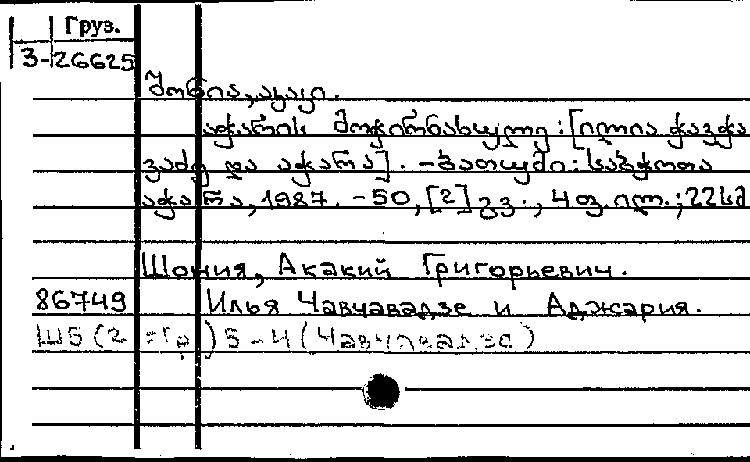 Груз.
3-26625
შონია, აკაკი.
აჭარის მოჭირნახულე : [ილია ჭავჭა
ვაძე და აჭარა]. - ბათუმი : საბჭოთა
აჭარა, 1987. - 50, [2] გვ., 4 ფ. ილ. ; 22 სმ
Шония, Акакий Григорьевич.
86749 Илья Чавчавадзе и Аджария.
Ш5(2=Гр)5-4(Чавчавадзе)